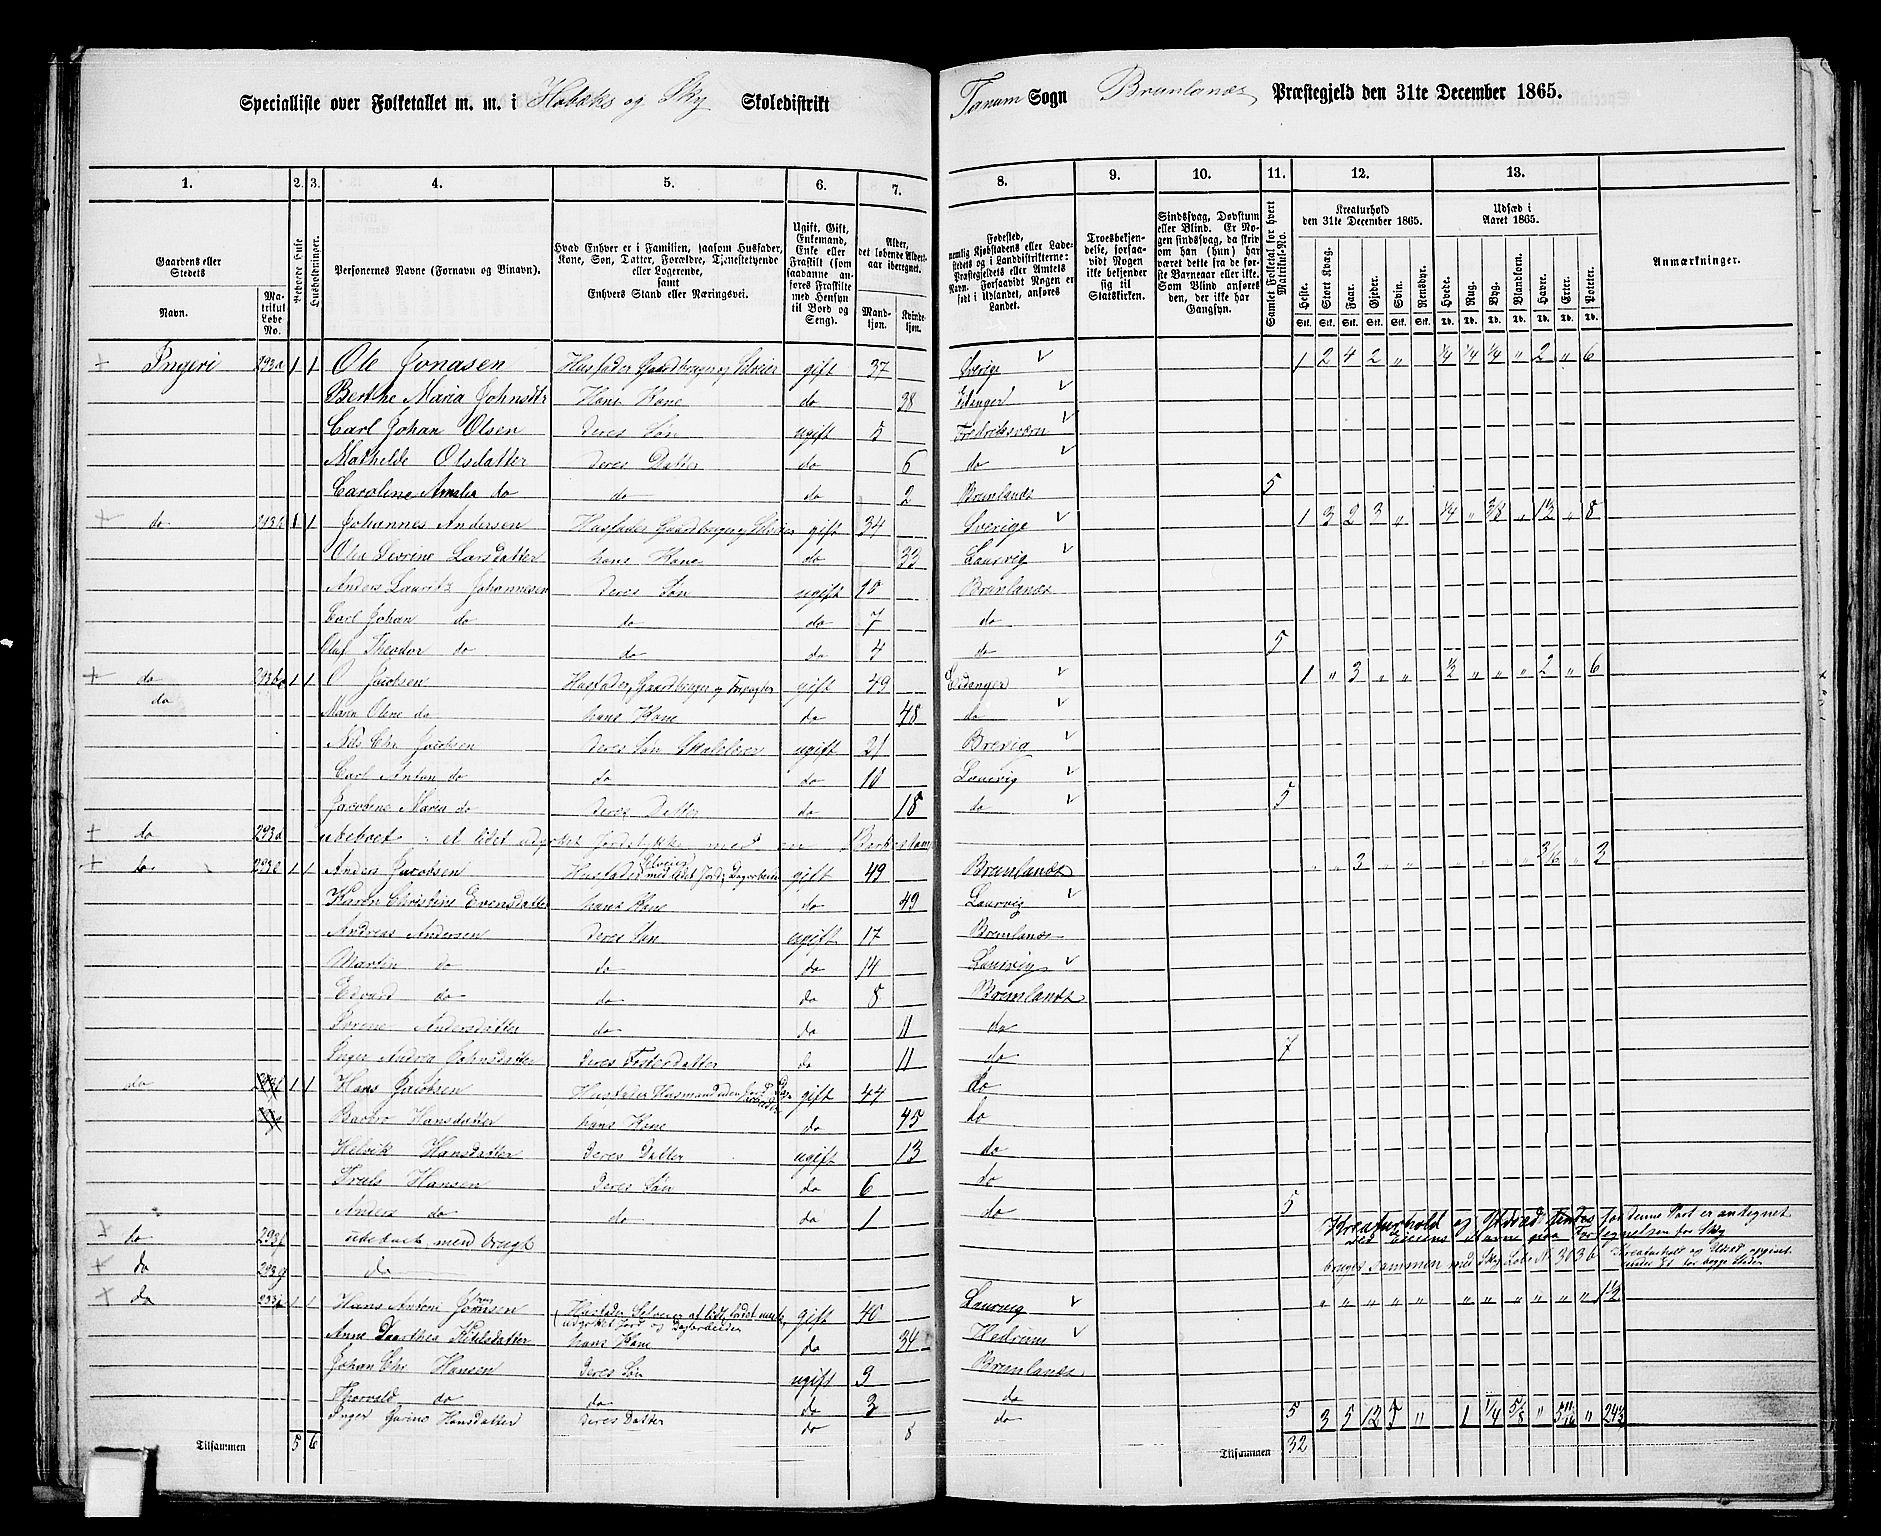 Specialliste over Folketallet m. m. i Hobæks og Sky Skoledistrikt
Tanum Sogn Brunlanæs Præstegjeld den 31te December 1865.
1. 2. 3. 4. 5. 6. 7. 8. 9. 10. 11. 12. 13.
Gaardens eller Stedets
Navn.
Matrikul Løbe No.
Beboede Huse
Husholdninger.
Personernes Navne (Fornavn og Binavn).
Hvad Enhver er i Familien, saasom Husfader, Kone, Søn, Datter, Forældre, Tjenestetyende eller Logerende, samt Enhvers Stand eller Næringsvei.
Ugift, Gift, Enkemand, Enke eller Fraskilt (som saadanne anføres Fraskilte med Hensyn til Bord og Seng).
Alder, det løbende Aldersaar iberegnet.
Mandkjøn.
Kvindekjøn.
Fødested, nemlig Kjøbstadens eller Ladestedets og i Landdistrikterne: Præstegjeldets eller Amtets Navn. Forsaavidt Nogen er født i Udlandet, anføres Landet.
Troesbekjendelse, forsaavidt Nogen ikke bekjender sig til Statskirken.
Sindssvag, Døvstum eller Blind. Er Nogen sindssvag, da skrives om han (hun) har været dette fra de første Barneaar eller ikke. Som Blind anføres den, der ikke har Gangsyn.
Samlet Folketal for hvert Matrikul-No.
Kreaturhold den 31te December 1865.
Heste. Stort Kvæg. Faar. Gjeder. Svin. Rensdyr.
Udsæd i Aaret 1865.
Hvede. Rug. Byg. Blandkorn. Havre. Erter. Poteter.
Anmærkninger.
293a 1 1 Ole Jonasen Husfader Gaardbruger og Selveier gift 37 Sverige 1 2 4 2 " ¼ ¼ ¼ " 2 " 6
Berthe Maria Johnsdtr Hans Kone do 38 Eidanger
Carl Johan Olsen Deres Søn ugift 5 Fredriksværn
Mathilde Olsdatter Deres Datter do 6 do
Caroline Amalia do do do 2 Brunlanæs 5
do 1 1 Johannes Andersen Husfader Gaardbruger og Selveier gift 34 Sverige 1 3 2 3 " ¼ " 3/8 " 1½ " 8
Severine Larsdatter hans Kone do 33 Laurvig
Anders Lauritz Johannesen Deres Søn ugift Brunlanæs
Carl Johan do do do 7 do
Olaf Theodor do do do 4 do 5
do 1 1 O Jacobsen Husfader, Gaardbruger og gift 49 Eidanger 1 " 3 " " ½ " " " 2 " 6
do Maren Oline do hans Kone do 48 do
Nils Chr. Jacobsen Deres Søn Skolelærer ugift 21 Brevig
Carl Anton do do do Laurvig
Jacobine Maria do Deres Datter do 18 do 5
do 293d ubeboet : et lidet udyrket Jordstykke med en
do 293e 1 1 Anders Jacobsen Husfader Selveier med lidet Jord, gift 49 Brunlanæs " " 3 " " " " " " 3/16 " 3
Karen Christine Evensdatter hans Kone do 49 Laurvig
Andreas Andersen Deres Søn ugift 17 Brunlanæs
Martin do do do 14 Laurvig
Edvard do do do 8 Brunlanæs
Andersdatter do do 11 do
Inger Andrea Deres Fosterdatter do 11 do 7
do 1 1 Hans Jacobsen Husfader Husmand uden Jord gift 44 do
Hansdatter hans Kone do 45 do
Helvik Hansdatter Deres Datter ugift 13 do
Truls Hansen Deres Søn do 6 do
Anders do do do 1 do 5
do 293f ubeboet, med Kreaturhold og Udsæd for denne Part er antegnet
ved Eierens Navn paa Fortegnelsen for Sky
do 293g do bruges sammen med Sky Løbe N 303b Kreaturhold og Udsæd
under Et for begge Steder
do 1 1 Hans Anton Husfader Selveier af lidt gift 40 Laurvig " " " " " " " " " " " 1½
udyrket Jord og Dagarbeider
Anne Dorthea hans Kone do 34 Hedrum
Johan Chr Hansen Deres Søn ugift 9 Brunlanæs
Thorvald do do do 3 do
Inger Hansdatter Deres Datter do 8 do 5
Tilsammen 5 6
Tilsammen 32 3 5 12 5 " 1 ¼ 5/8 " 5 11/16 " 24½